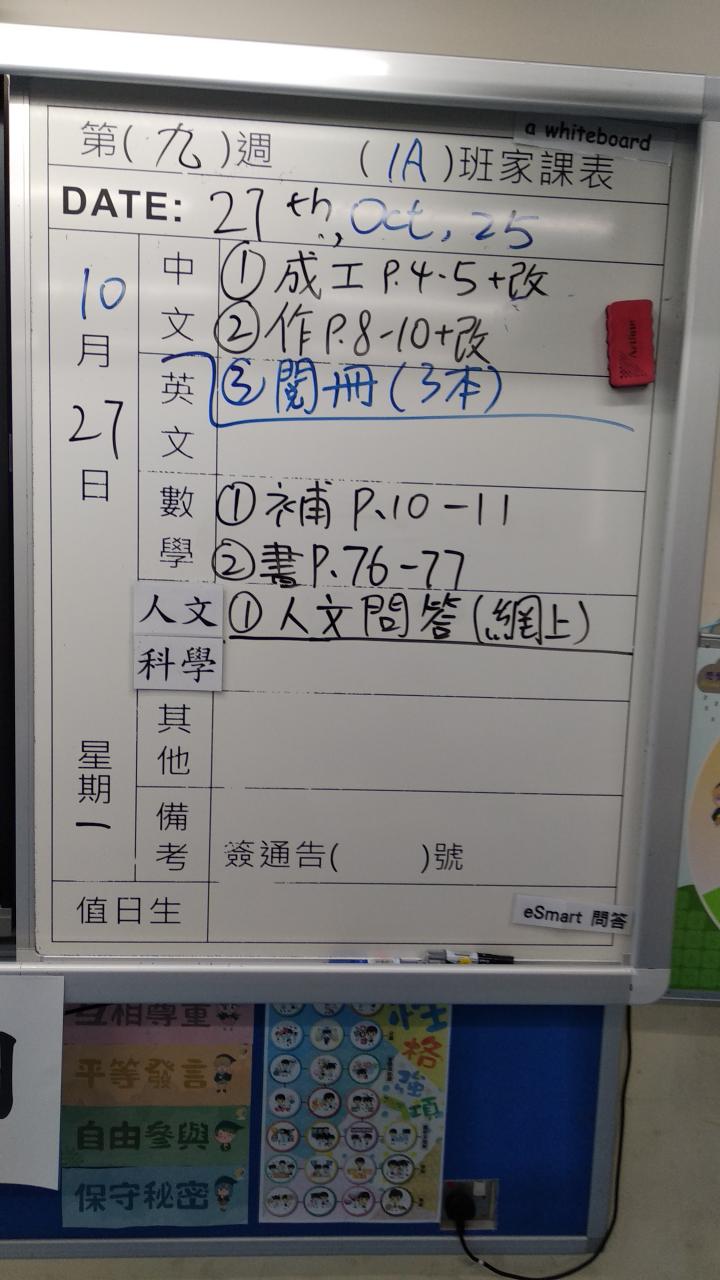 a whiteboard
第(九)週 (1A)班家課表
DATE: 27th, Oct, 25
10月27日
星期一
中文
①成工 P.4-5+改
②作P.8-10+改
③閱冊(3本)
英文
數學
①補 P.10-11
②書P.76-77
人文
①人文問答(網上)
科學
其他
備考
簽通告( )號
值日生
eSmart 問答
互相尊重
平等發言
自由參與
保守秘密
性格強項